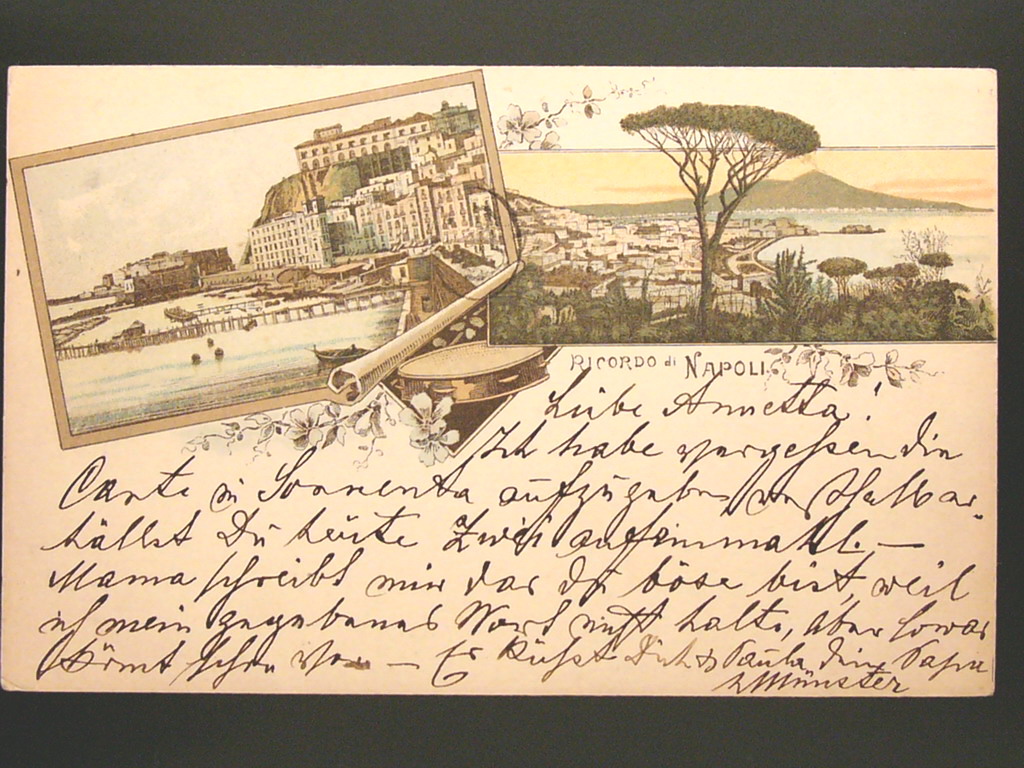 RICORDO di NAPOLI.
Liebe Annetta!
Ich habe vergessen die
Carte in Sorrento aufzugeben,
hällst Du heute Zwei aufeinmahl. —
Mama schreibt mir das Du böse bist, weil
ich mein gegebenes Wort nicht halte, aber sowas
kömt schon vor — Es Küsst Dich & Paula dein Papa
Münster